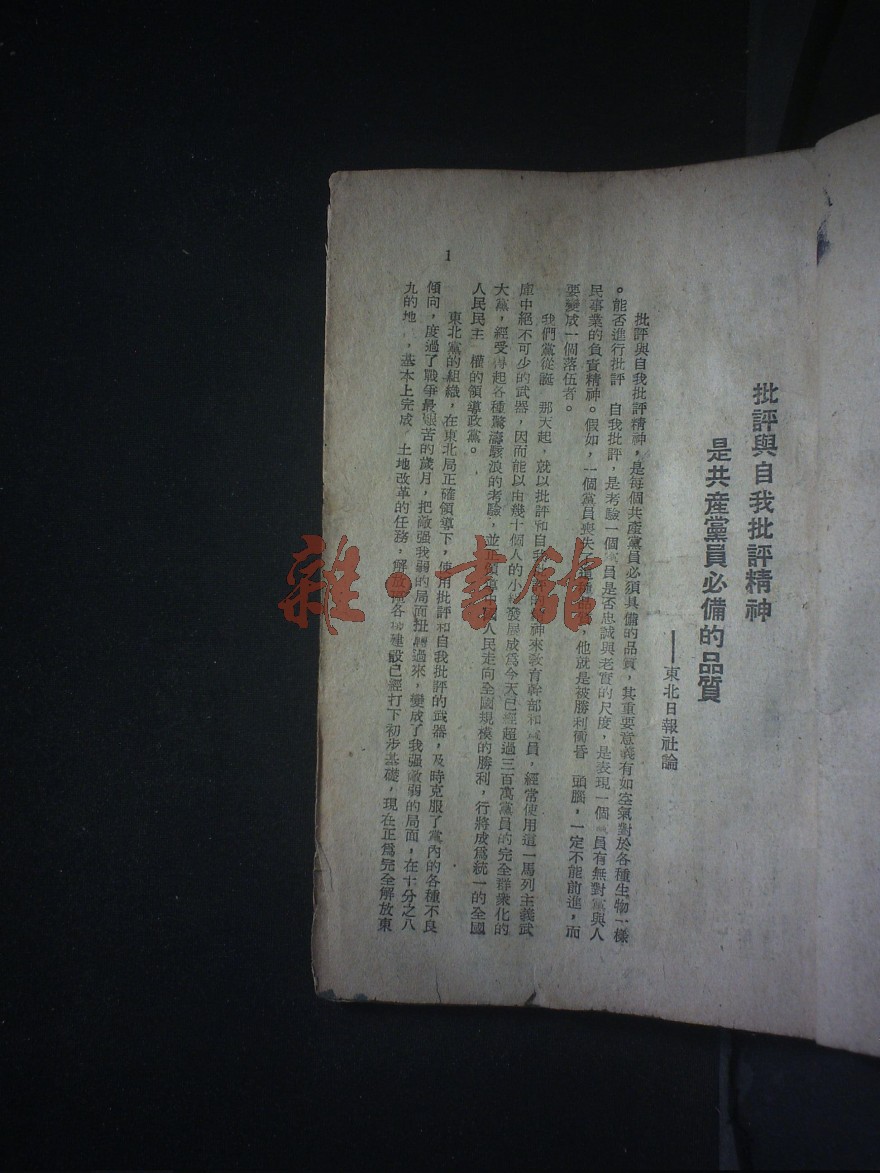 批評與自我批評精神
是共産黨員必備的品質
——東北日報社論
批評與自我批評精神，是每個共產黨員必須具備的品質，其重要意義有如空氣對於各種生物一樣
。能否進行批評 自我批評，是考驗一個黨員是否忠誠與老實的尺度，是表現一個黨員有無對黨與人
民事業的負責精神。假如，一個黨員喪失了這種品質，他就是被勝利衝昏 頭腦，一定不能前進，而
要變成一個落伍者。
我們黨從誕 那天起，就以批評和自我批評的精神來敎育幹部和黨員，經常使用這一馬列主義武
庫中絕不可少的武器，因而能以由幾十個人的小 發展成爲今天已經超過三百萬黨員的完全群衆化的
大黨，經受得起各種驚濤駭浪的考驗，並正領導中國人民走向全國規模的勝利，行將成爲統一的全國
人民民主 權的領導政黨。
東北黨的組織，在東北局正確領導下，使用批評和自我批評的武器，及時克服了黨內的各種不良
傾向，度過了戰爭最艱苦的歲月，把敵强我弱的局面扭轉過來，變成了我强敵弱的局面，在十分之八
九的地 ，基本上完成 土地改革的任務，解放 各 建設已經打下初步基礎，現在正爲完全解放東
1
雜·書館